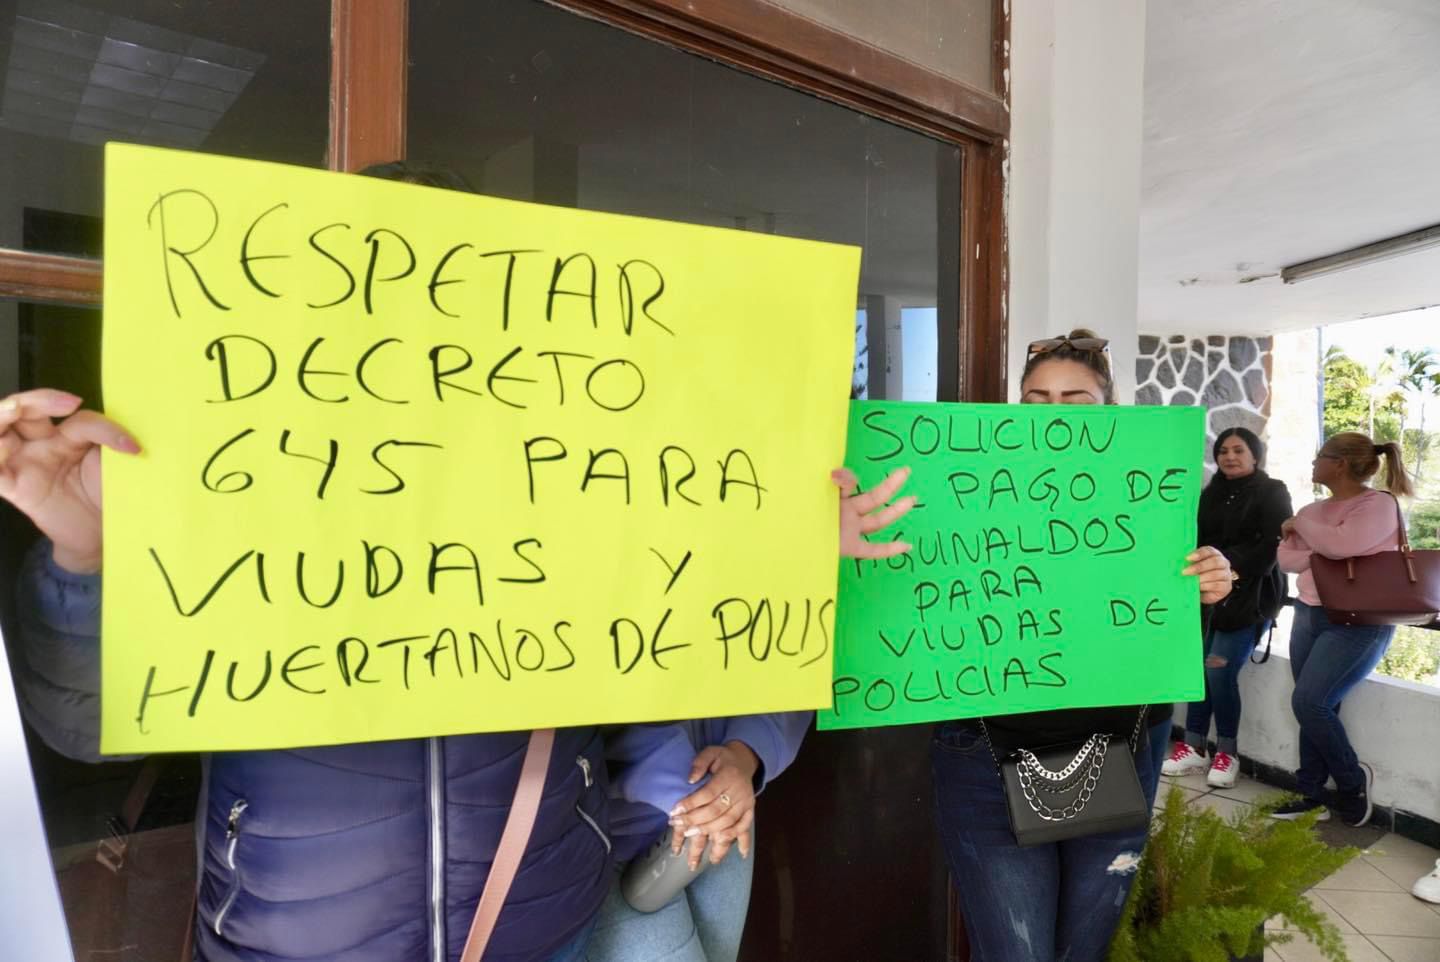 RESPETAR
DECRETO
645 PARA
VIUDAS Y
HUERTANOS DE POLIS
SOLUCION
PAGO DE
AGUINALDOS
PARA
VIUDAS DE
POLICIAS